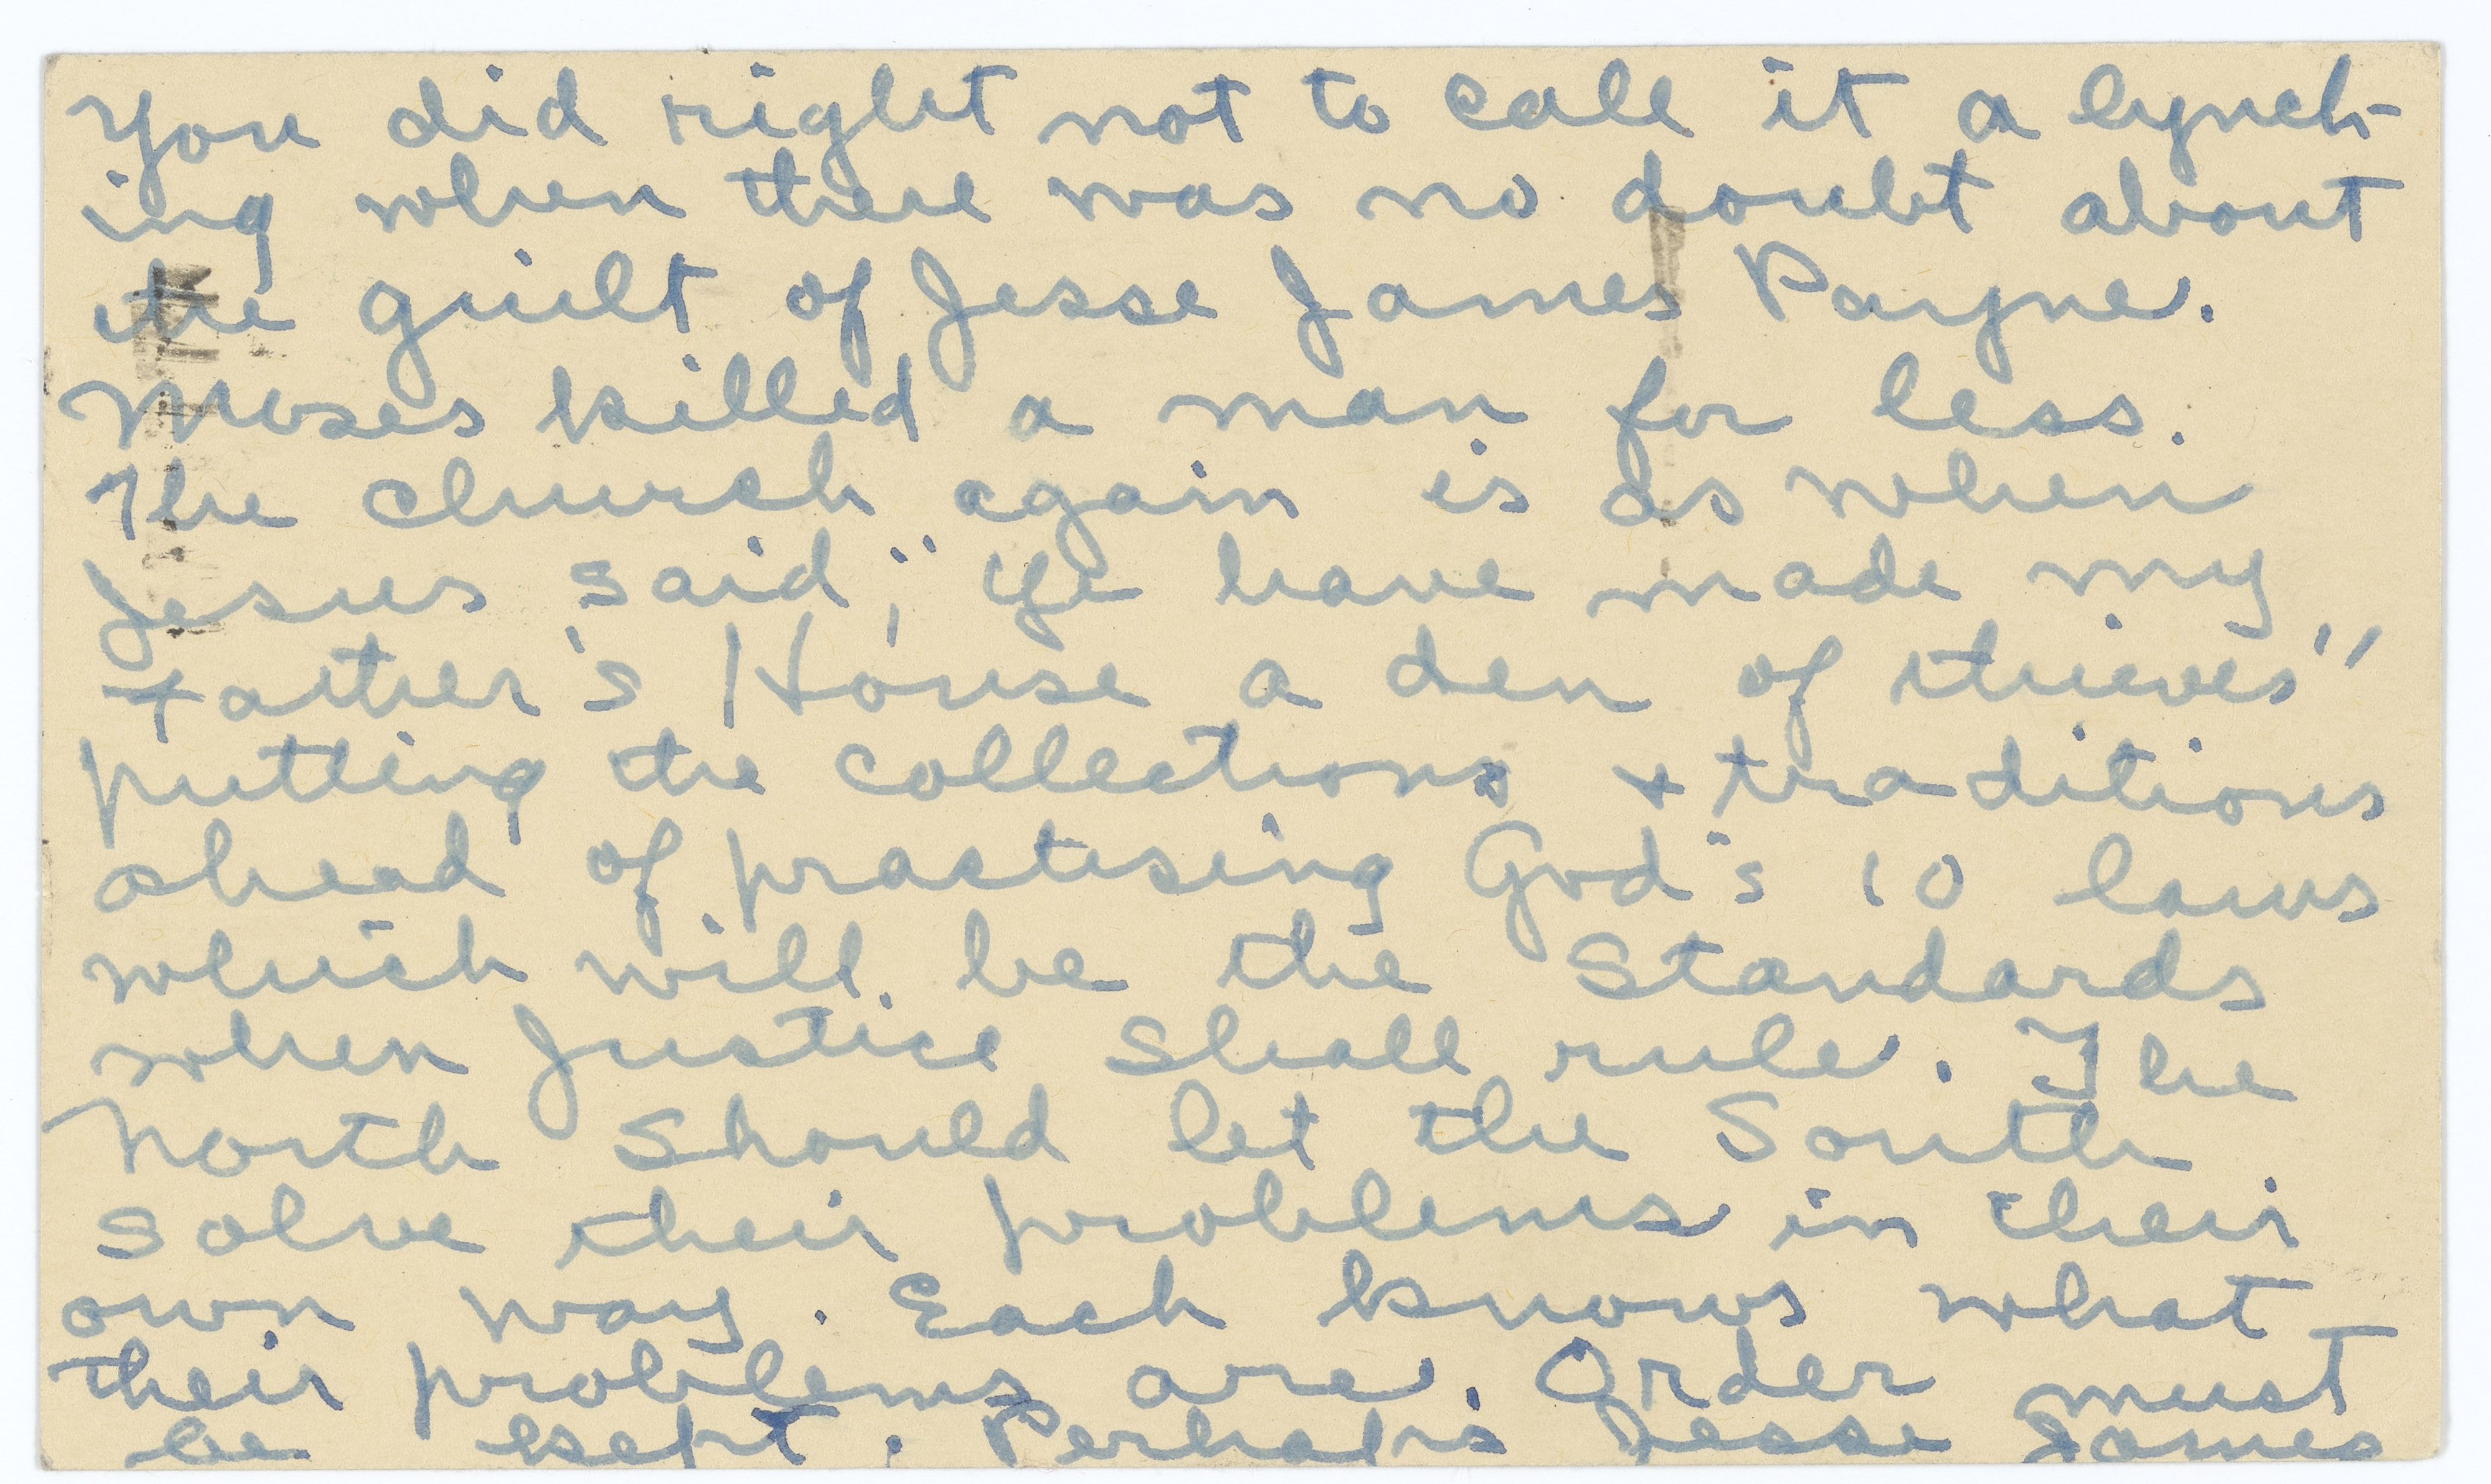 You did right not to call it a lynch-
ing when there was no doubt about
the guilt of Jesse James Payne.
Moses killed a man for less.
The church again is as when
Jesus said, "Ye have made my
Father's House a den of thieves"
putting the collections + traditions
ahead of practising God's 10 laws
which will be the Standards
when Justice shall rule. The
North should let the South
solve their problems in their
own way. Each knows what
their problems are. Order must
be kept. Perhaps Jesse James